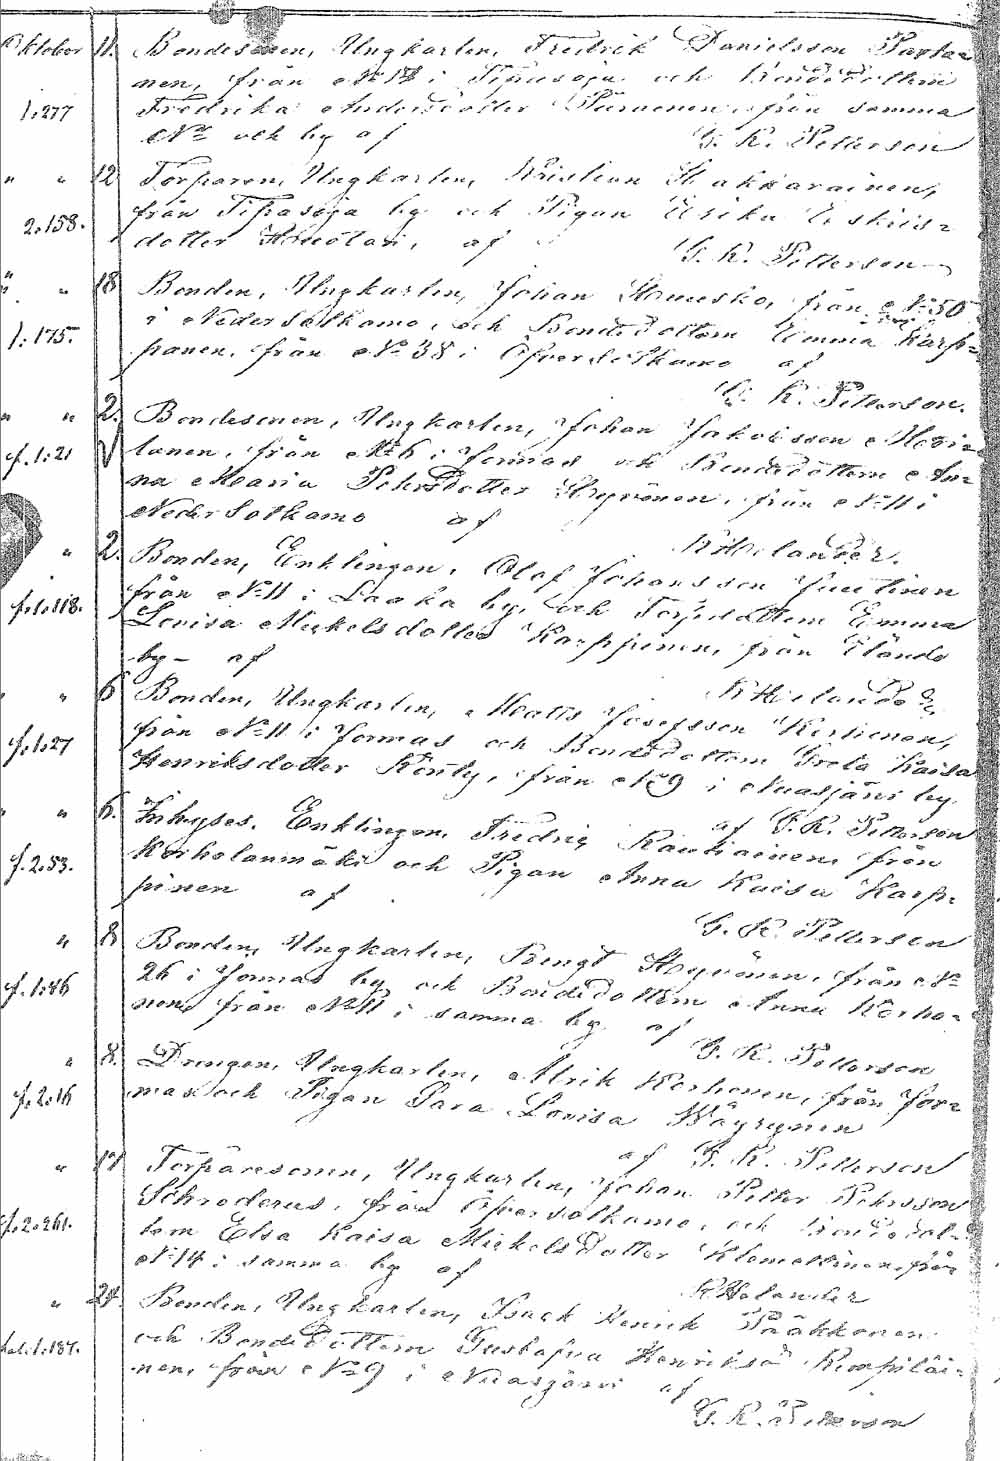 Oktober 11. Bondesonen, Ungkarlen, Fredrik Danielsson
nen, från No 14 i Tipasoja och Bondedottern
1:277 Fredrika Andersdotter från samma
No och by af G. R. Petterson
" " 12 Torparen, Ungkarlen, Kristian Hakkarainen,
2:158. från Tipasoja by och Pigan Erika Eskils-
dotter af G. R. Petterson
" " 18 Bonden, Ungkarlen, Johan från No 50
1:175. i Nedersotkamo, och Bondedottern Emma Karp-
panen, från No 38 i Öfversotkamo af
G. R. Petterson.
" " 2. Bondesonen, Ungkarlen, Johan Jakobsson
f. 1:21 lanen, från No 6 i Jormas och Bondedottern An-
na Maria Pehrsdotter Hyvönen, från No 11 i
Nedersotkamo af
K Helander.
" 2. Bonden, Enklingen, Olof Johansson Juntinen
f. 1:118. från No 11 i Laaka by, och Torpdottern Emma
Lovisa Mickelsdotter Karppinen, från
by - af
K Helander
" " 6 Bonden, Ungkarlen, Matts Josefsson Korhonen,
f. 1:27 från No 11 i Jormas och Bondedottern Greta Kaisa
Henriksdotter från No 9 i Nuasjärvi by.
af G. R. Petterson
" " 6. Inhyses, Enklingen, Fredrig Rautiainen, från
f. 2:53. Korholanmäki och Pigan Anna Kaisa Karp-
pinen af
G. R. Petterson
" 8 Bonden, Ungkarlen, Bengt Hyvönen, från No
f. 1:46 26 i Jormas by och Bondedottern Anna Korho-
nen, från No 11 i samma by af
G. R. Petterson
" 8. Drengen, Ungkarlen, Ulrik Korhonen, från Jor-
f. 2:16 mas och Pigan Sara Lovisa Wäyrynen
af G. R. Petterson
" 17 Torparesonen, Ungkarlen, Johan Petter Pehrsson
f. 2:261. Schroderus, från Öfversotkamo, och Bondedot-
tern Elsa Kaisa Mickelsdotter Klemettinen, från
No 14 i samma by af
K Helander
" 24. Bonden, Ungkarlen, Isack Henrik Pääkkonen
1:187. och Bondedottern Gustafva Henriksd
nen, från No 9 i Nuasjärvi af
G. R. Petterson